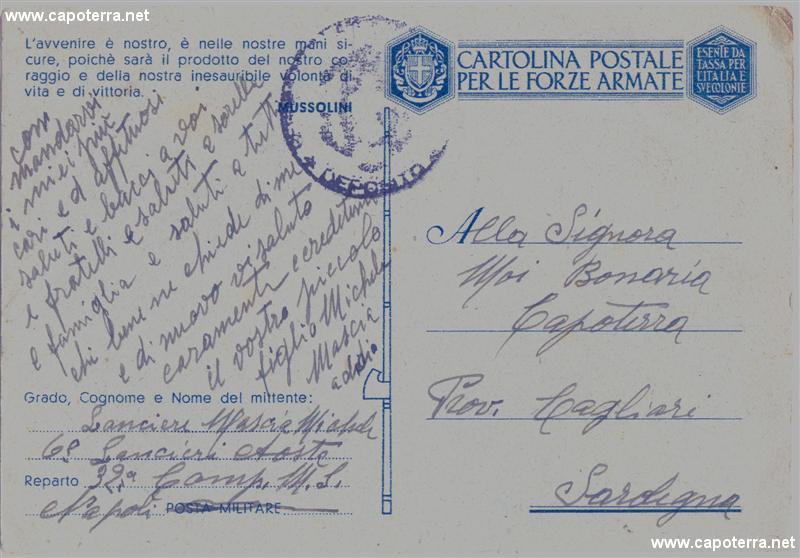 www.capoterra.net
L'avvenire è nostro, è nelle nostre mani si-
cure, poichè sarà il prodotto del nostro co-
raggio e della nostra inesauribile volontà di
vita e di vittoria.
MUSSOLINI
DEPOSITO
CARTOLINA POSTALE
PER LE FORZE ARMATE
ESENTE DA
TASSA PER
L'ITALIA E
SVE COLONIE
com
mandarvi
i miei più
cari ed affituosi
saluti e bacci a voi
e fratelli e saluti a sorelle
e famiglia e saluti a tutti
chi bene ne chiede di me
e di nuovo vi saluto
caramenti e creditimi
il vostro piccolo
figlio Michele
Mascia
addio
Alla Signora
Moi Bonaria
Capoterra
Prov. Cagliari
Sardegna
Grado, Cognome e Nome del mittente:
Lanciere Mascia Michele
6° Lancieri Aosta
Reparto 32ª Comp. M.L.
Napoli POSTA MILITARE
www.capoterra.net